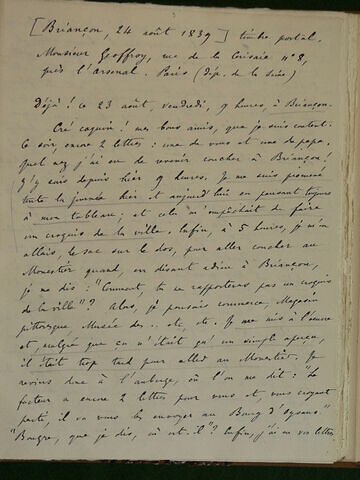 [Briançon, 24 août 1839] timbre postal.
Monsieur Geoffroy, rue de la Cerisaie n° 8,
près l'arsenal. Paris (Dép. de la Seine)
Déjà! ce 23 août, vendredi, 9 heures, à Briançon.
Cré coquin! mes bons amis, que je suis content.
Ce soir, encore 2 lettres: une de vous et une de papa.
Quel nez j'ai eu de revenir coucher à Briançon!
J'y suis depuis hier 9 heures. Je me suis promené
toute la journée hier et aujourd'hui en pensant toujours
à mon tableau; et cela m'empêchait de faire
un croquis de la ville. Enfin, à 5 heures, je m'en
allais, le sac sur le dos, pour aller coucher au
Monestier quand, en disant adieu à Briançon,
je me dis: "Comment, tu ne rapporteras pas un croquis
de la ville"? Alors, je pensais commerce, Magasin
pittoresque, Musée des.. etc, etc. Je me mis à l'œuvre
et, malgré que ça n'était qu'un simple aperçu,
il était trop tard pour aller au Monestier. Je
revins donc à l'auberge, où l'on me dit: "Le
facteur a encore 2 lettres pour vous et, vous croyant
parti, il va vous les envoyer au Bourg d'Oysans."
"Bougre, que je dis, où est-il"? Enfin, j'ai eu vos lettres